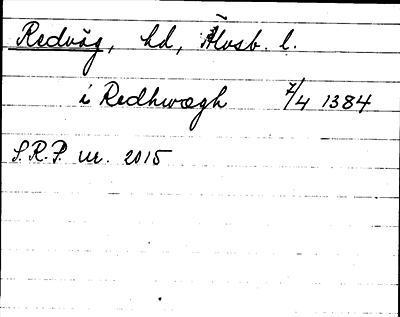 Redväg, hd, Älvsb. l.
i Redhwægh 7/4 1384
S.R.P. nr. 2015